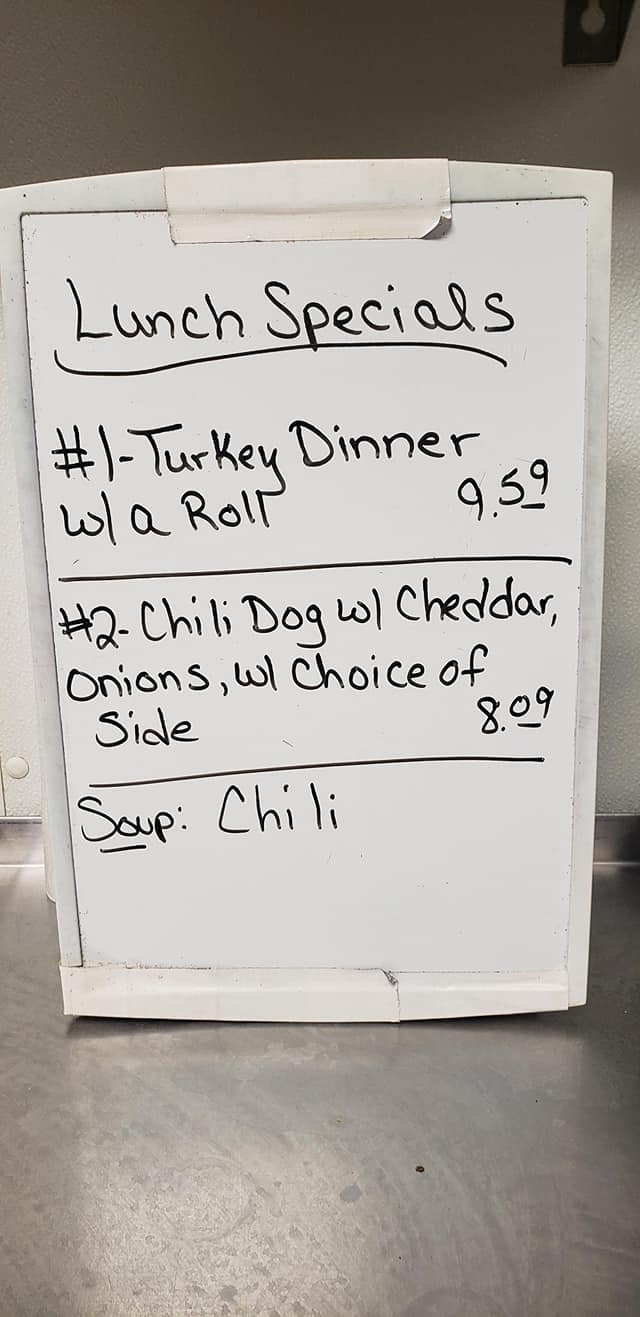 Lunch Specials
#1-Turkey Dinner
w/ a Roll 9.59
#2-Chili Dog w/ Cheddar,
Onions, w/ Choice of
Side 8.09
Soup: Chili